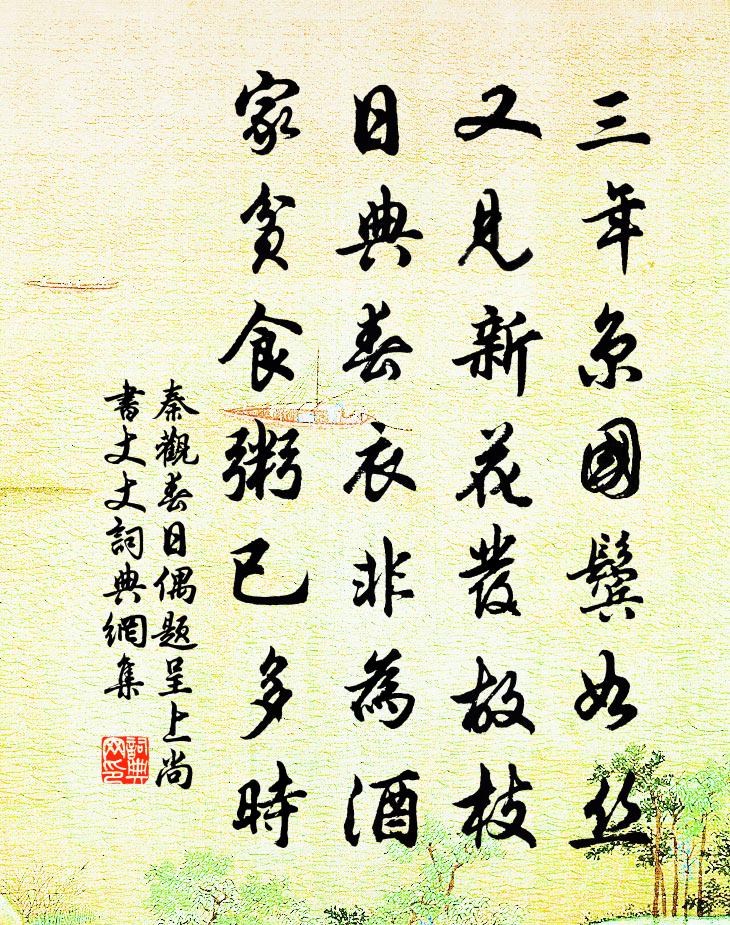 三年京國鬢如丝
又見新花發故枝
日典春衣非為酒
家貧食粥已多時
秦觀春日偶题呈上尚
書丈丈詞典網集
詞典网印